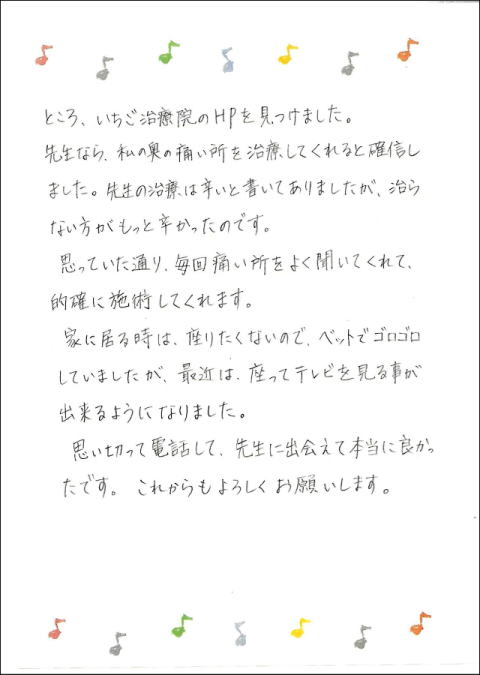 ところ、いちご治療院のHPを見つけました。
先生なら、私の奥の痛い所を治療してくれると確信し
ました。先生の治療は辛いと書いてありましたが、治ら
ない方がもっと辛かったのです。
思っていた通り、毎回痛い所をよく聞いてくれて、
的確に施術してくれます。
家に居る時は、座りたくないので、ベットでゴロゴロ
していましたが、最近は、座ってテレビを見る事が
出来るようになりました。
思い切って電話して、先生に出会えて本当に良かっ
たです。これからもよろしくお願いします。